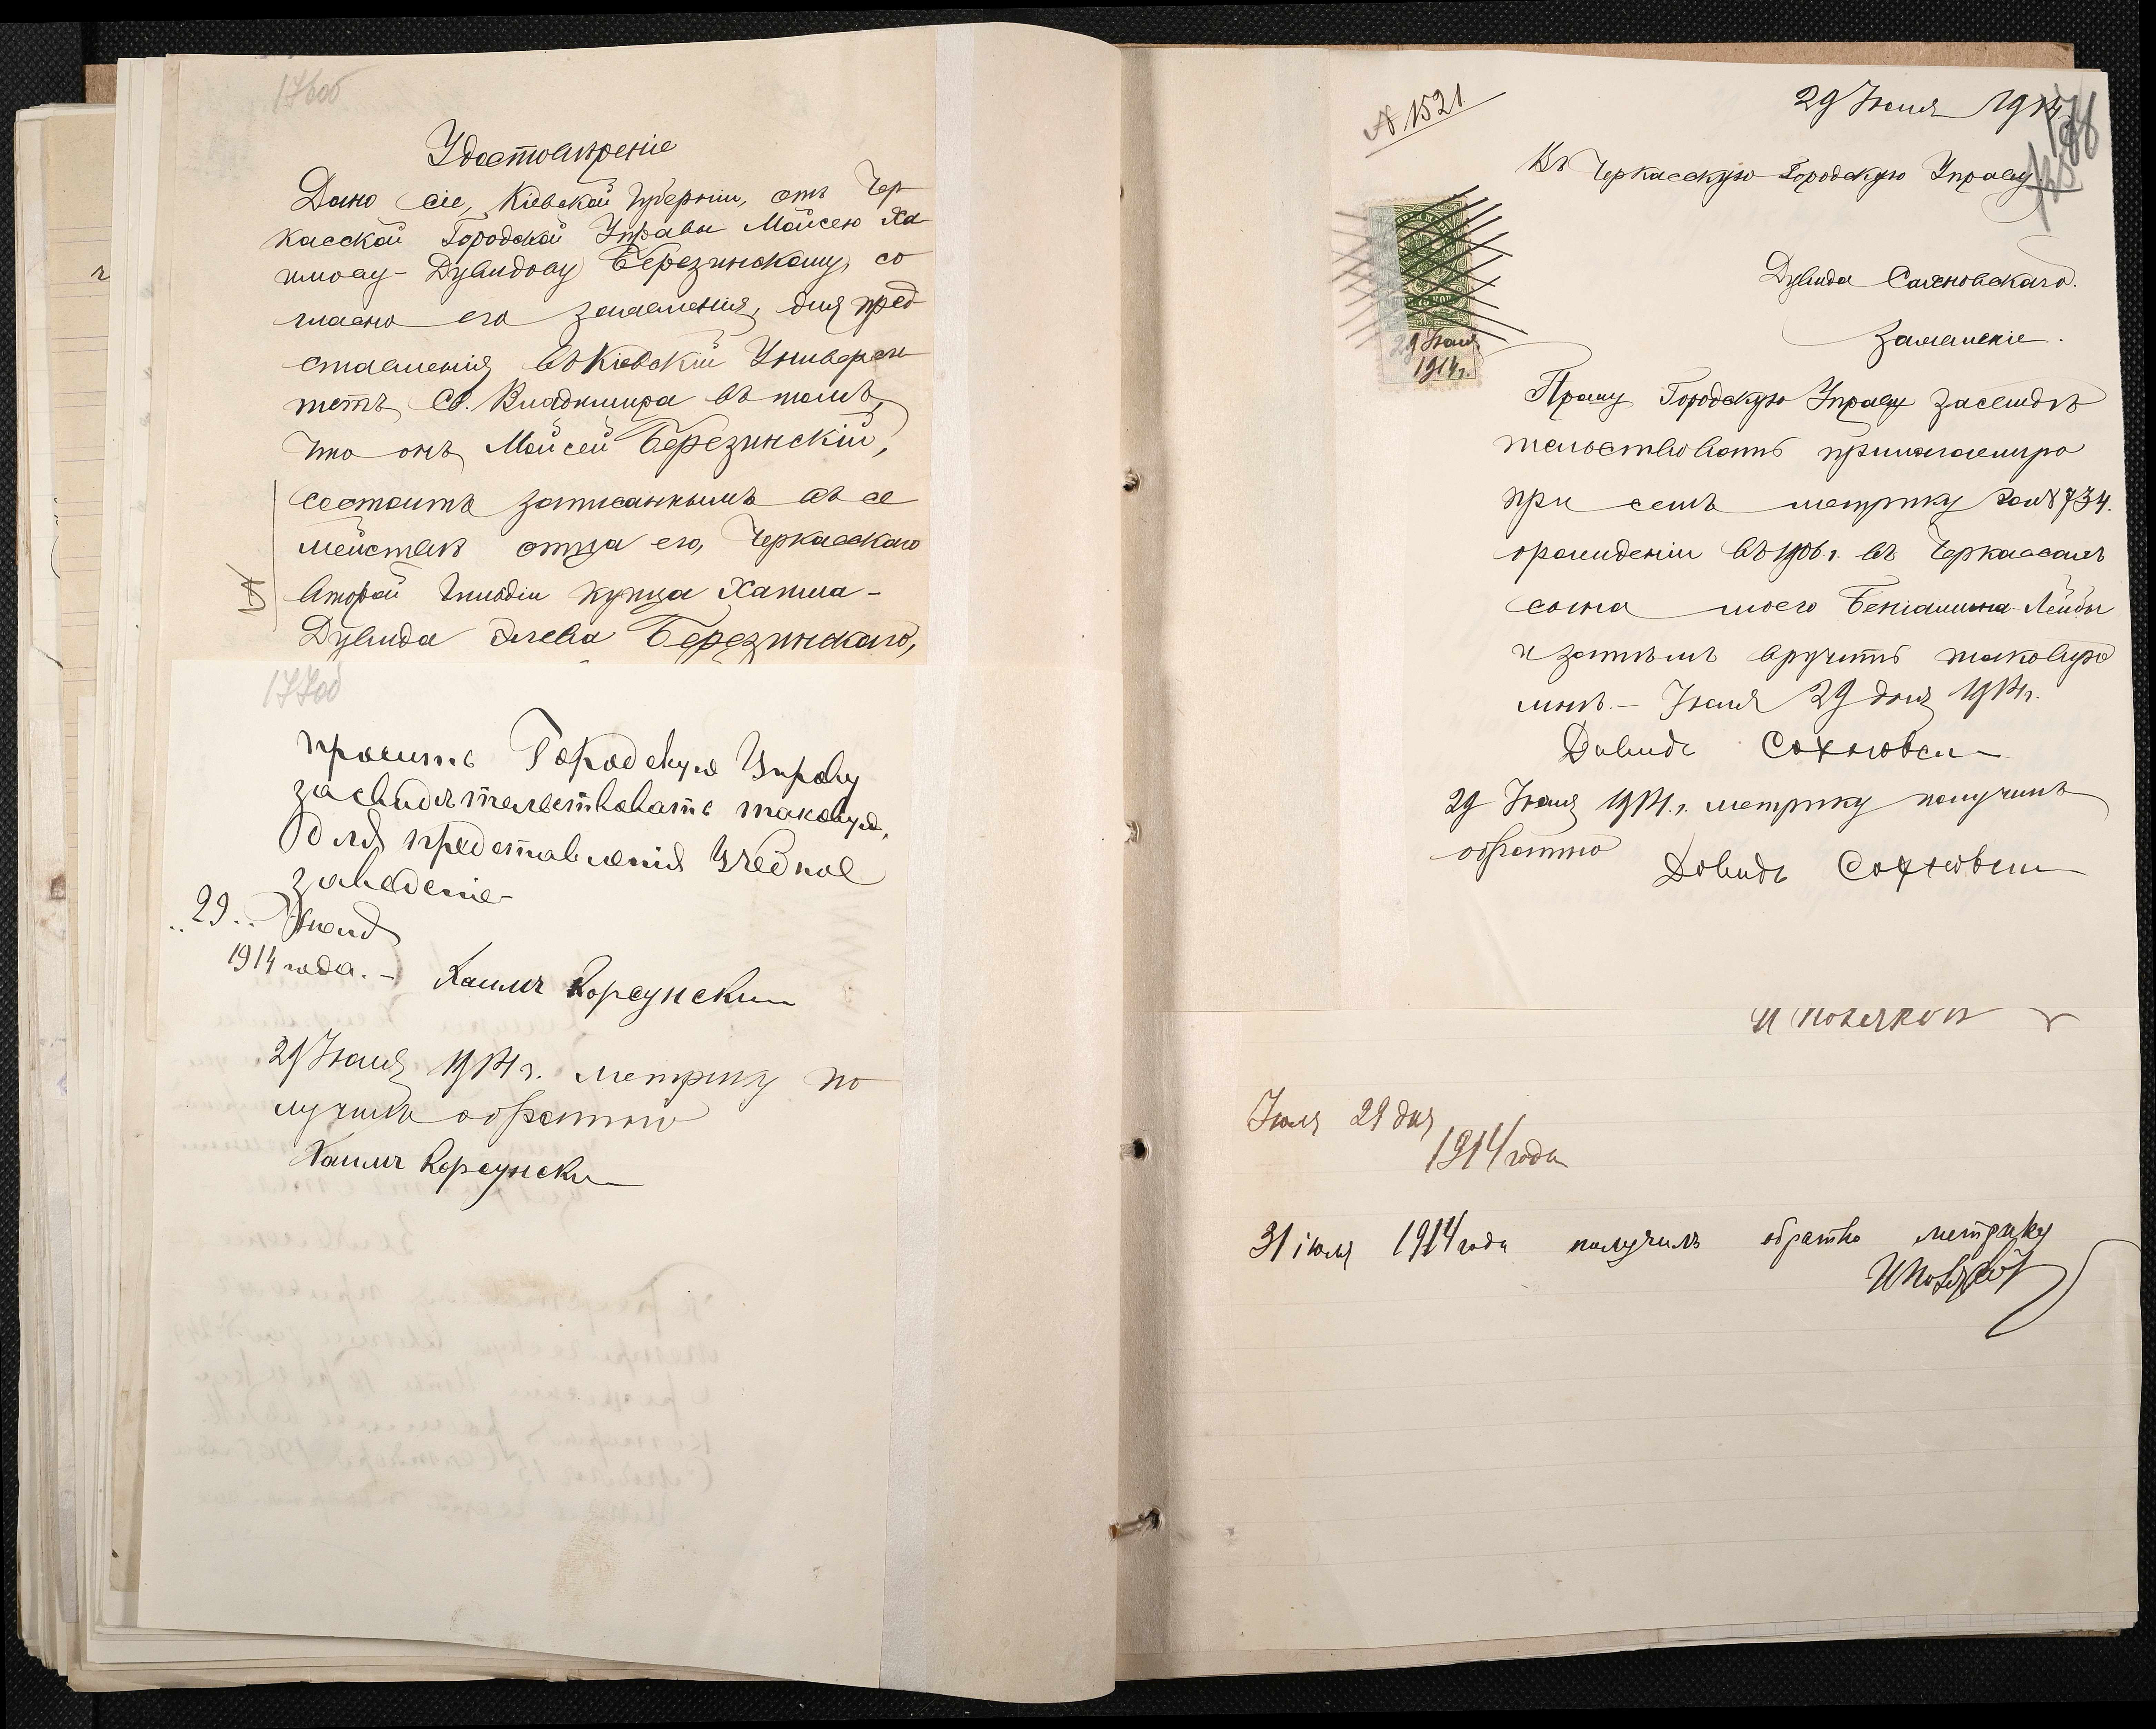 176об
Удостовѣреніе
Дано сіе, Кіевской губерніи, отъ Чер
касской Городской Управы Мойсею Ха
имову-Дувидову Березинскому, со
гласно его заявленія, для пред
ставленія въ Кіевскій Универси
тетъ Св. Владимира въ томъ,
что онъ, Мойсей Березинскій,
состоитъ записаннымъ въ се
мействѣ отца его, Черкасскаго
второй гильдіи купца Хаима-
Дувида Березинскаго,
177об
просить Городскую Управу
засвидѣтельствовать таковую,
для представленія Учебное
заведеніе-
"29" Іюля
1914 года. – Хаимъ Корсунски
29 Іюля 1914 г. метрику по
лучилъ обратно
Хаимъ Корсунски
№ 1521
29 Іюля 1914
178
Въ Черкасскую Городскую Управу.
Дувида Сахновскаго.
Заявленіе.
29 Іюля
1914 г.
Прошу Городскую Управу засвидѣ
тельствовать прилагаемую
при семъ метрику за № 734.
о рожденіи въ 1906 г. въ Черкассахъ
сына моего Беніамина-Лейбы
и затѣмъ вручить таковую
мнѣ. – Іюля 29 дня 1914 г.
Довидъ Сахновски
29 Іюля 1914 г. метрику получилъ
обратно
Довидъ Сахновски
И Поляковъ
Іюля 29 дня
1914 года
31 іюля 1914 года получилъ обратно метрику
И Поляковъ